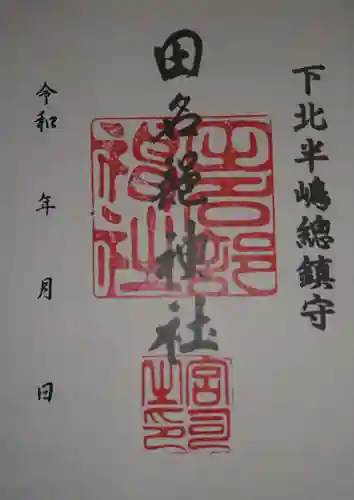 下北半嶋總鎮守
田名部神社
令和 年 月 日
田名部神社
宮司之印